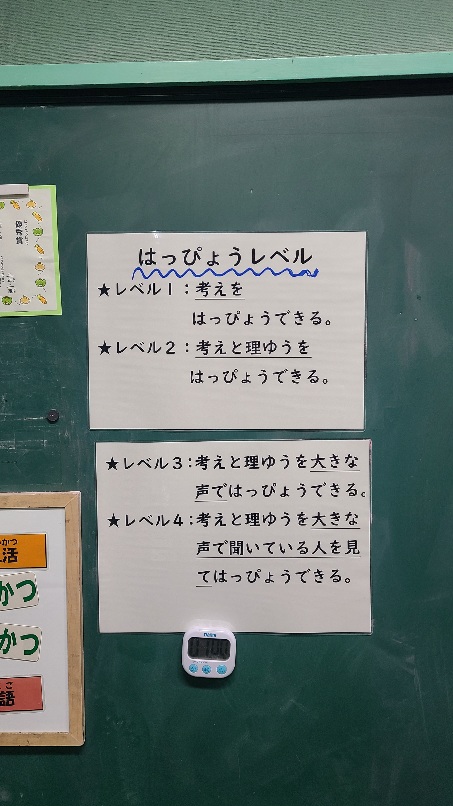 はっぴょうレベル
★レベル１：考えを
はっぴょうできる。
★レベル２：考えと理ゆうを
はっぴょうできる。
★レベル３：考えと理ゆうを大きな
声ではっぴょうできる。
★レベル４：考えと理ゆうを大きな
声で聞いている人を見
てはっぴょうできる。
活
かつ
かつ
語